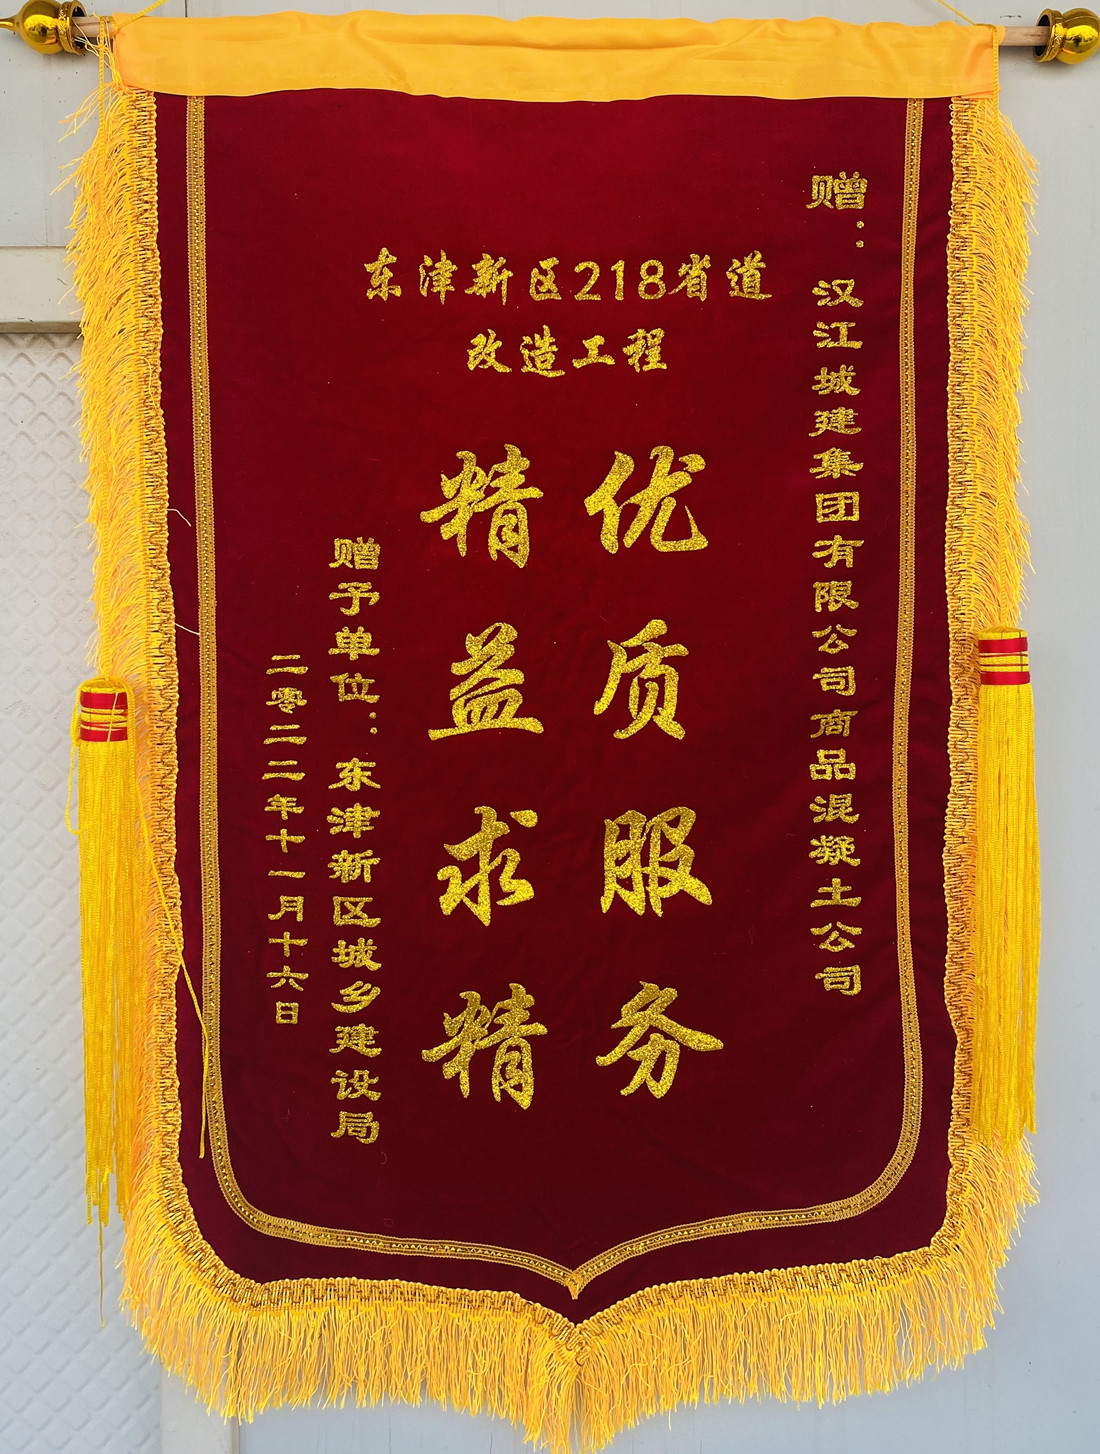 赠：汉江城建集团有限公司商品混凝土公司
东津新区218省道
改造工程
优质服务
精益求精
赠予单位：东津新区城乡建设局
二零二二年十一月十六日